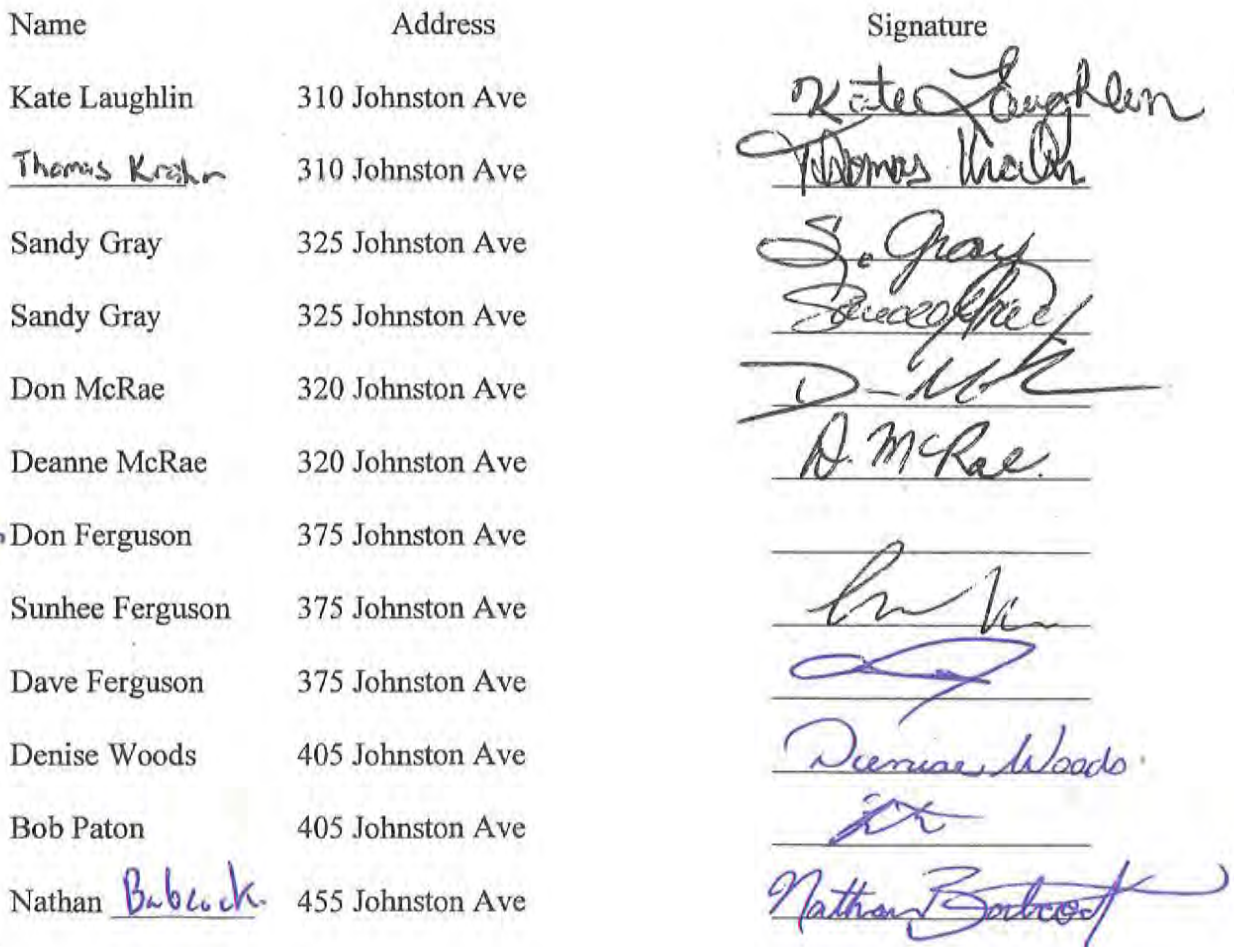 Name Address Signature
Kate Laughlin 310 Johnston Ave Kate Laughlin
Thomas Krahn 310 Johnston Ave Thomas Krahn
Sandy Gray 325 Johnston Ave S. Gray
Sandy Gray 325 Johnston Ave
Don McRae 320 Johnston Ave
Deanne McRae 320 Johnston Ave D. McRae.
Don Ferguson 375 Johnston Ave
Sunhee Ferguson 375 Johnston Ave
Dave Ferguson 375 Johnston Ave
Denise Woods 405 Johnston Ave Denise Woods
Bob Paton 405 Johnston Ave
Nathan Babcock. 455 Johnston Ave Nathan Babcock